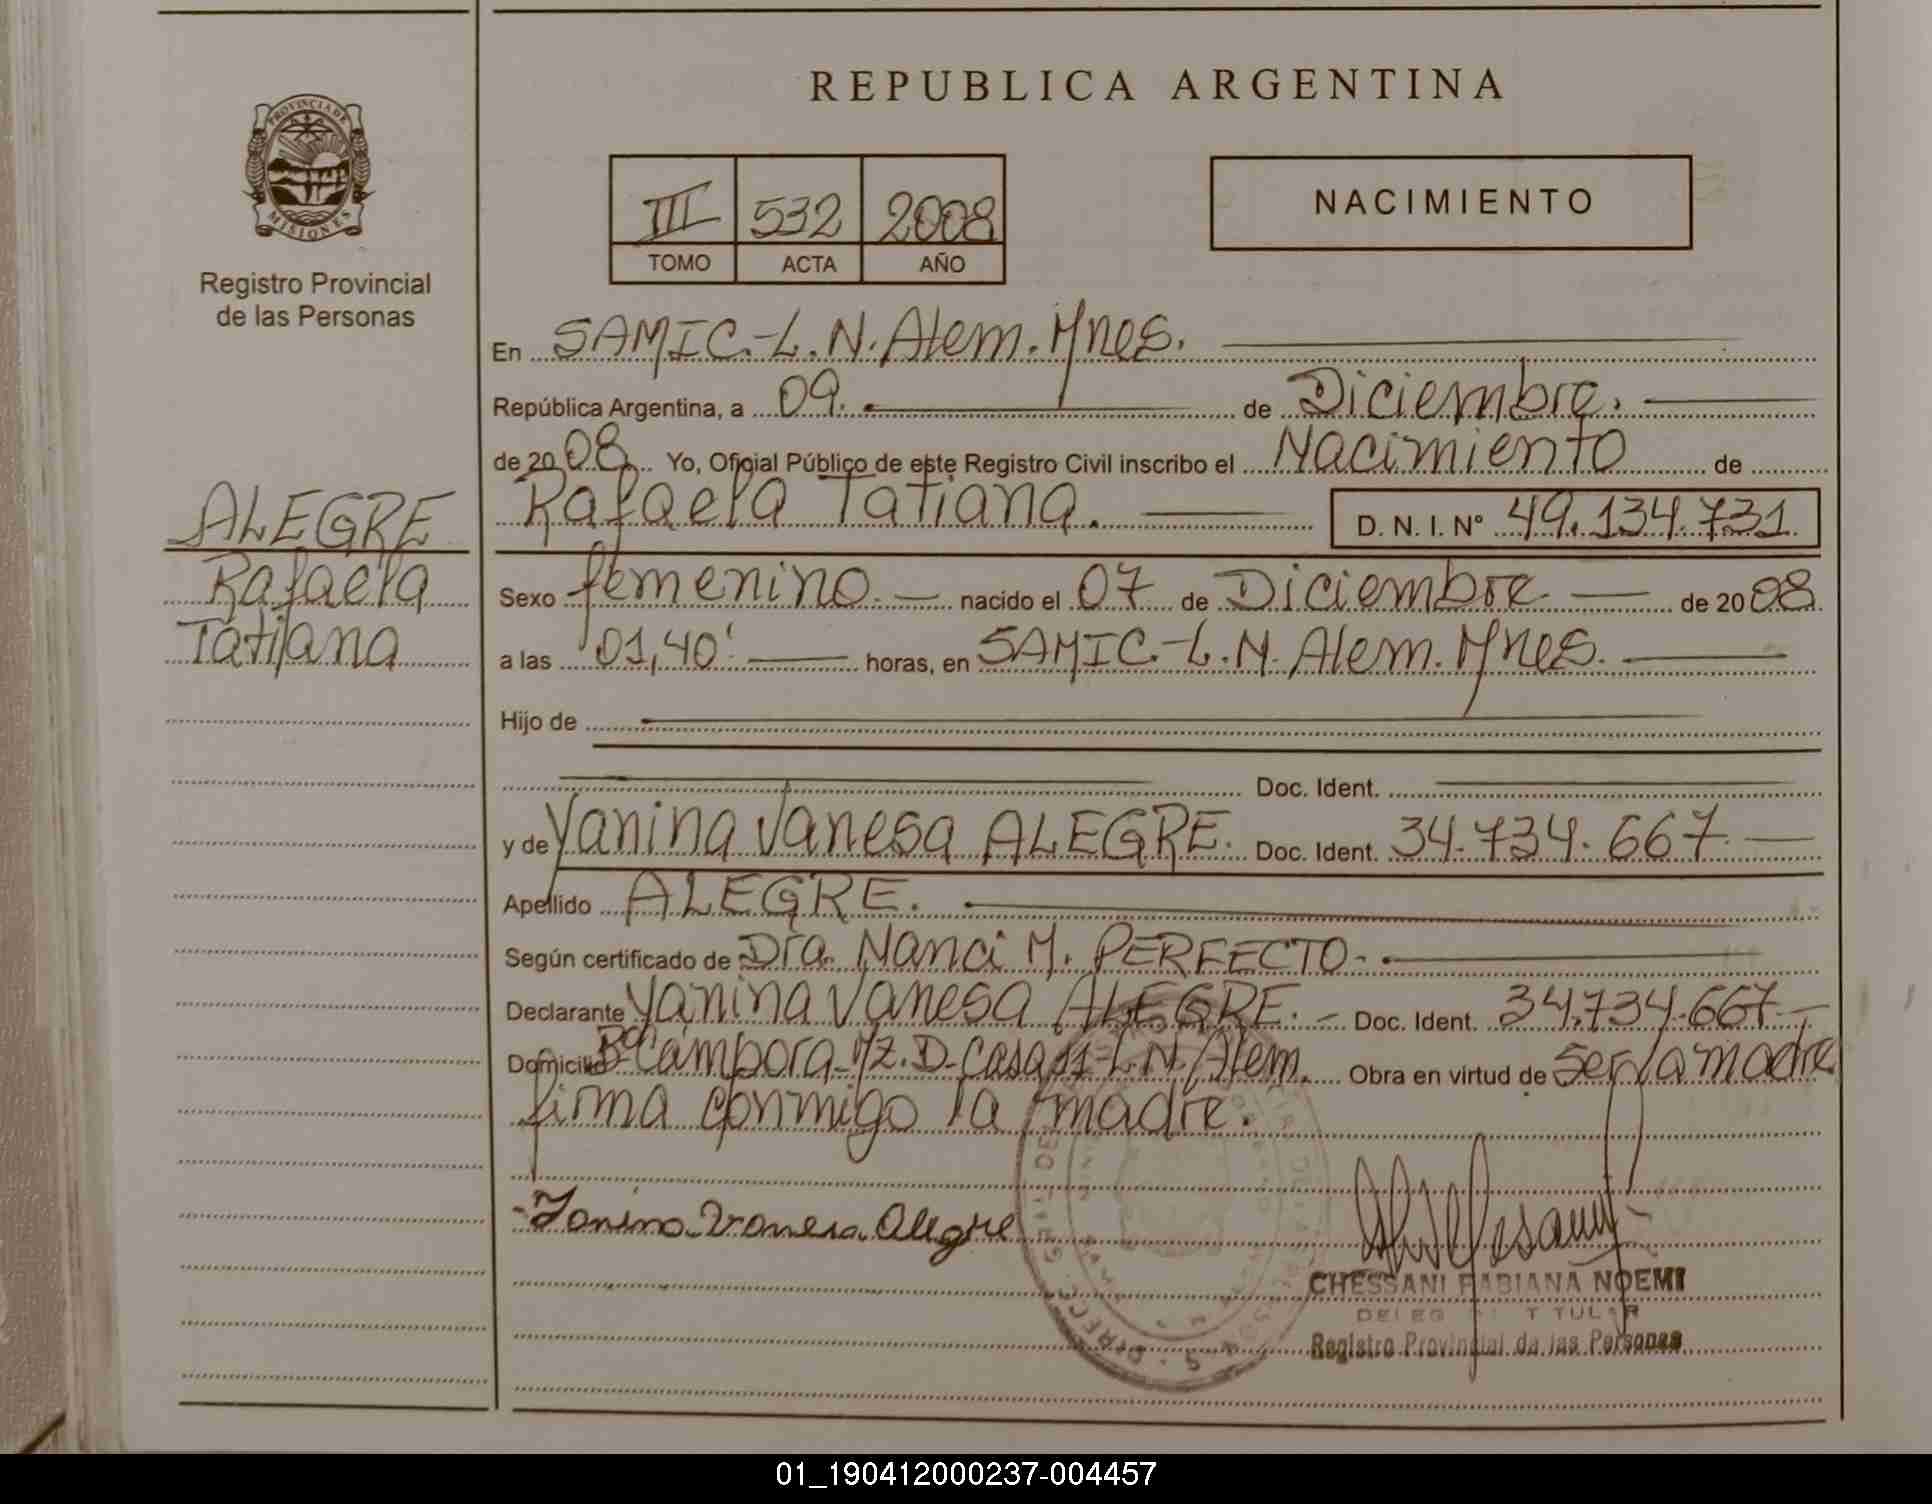 REPUBLICA ARGENTINA
PROVINCIA DE
MISIONES
Registro Provincial
de las Personas
III 532 2008
TOMO ACTA AÑO
NACIMIENTO
En SAMIC.-L.N.Alem.Mnes.
República Argentina, a 09. de Diciembre.
de 2008 Yo, Oficial Público de este Registro Civil inscribo el Nacimiento de
Rafaela Tatiana. D. N. I. N° 49.134.731
ALEGRE
Rafaela
Tatiana
Sexo femenino. nacido el 07 de Diciembre de 2008
a las 01,40' horas, en SAMIC.-L.N.Alem.Mnes.
Hijo de
Doc. Ident.
y de Yanina Vanesa ALEGRE. Doc. Ident. 34.734.667
Apellido ALEGRE.
Según certificado de Dra. Nanci M. PERFECTO.
Declarante Yanina Vanesa ALEGRE. Doc. Ident. 34.734.667
Domicilio Bº Cámpora-Mz.D-Casa 11-L.N.Alem. Obra en virtud de Ser la madre
firma conmigo la madre.
Yanina Vanesa Alegre
CHESSANI FABIANA NOEMI
Registro Provincial de las Personas
01_190412000237-004457